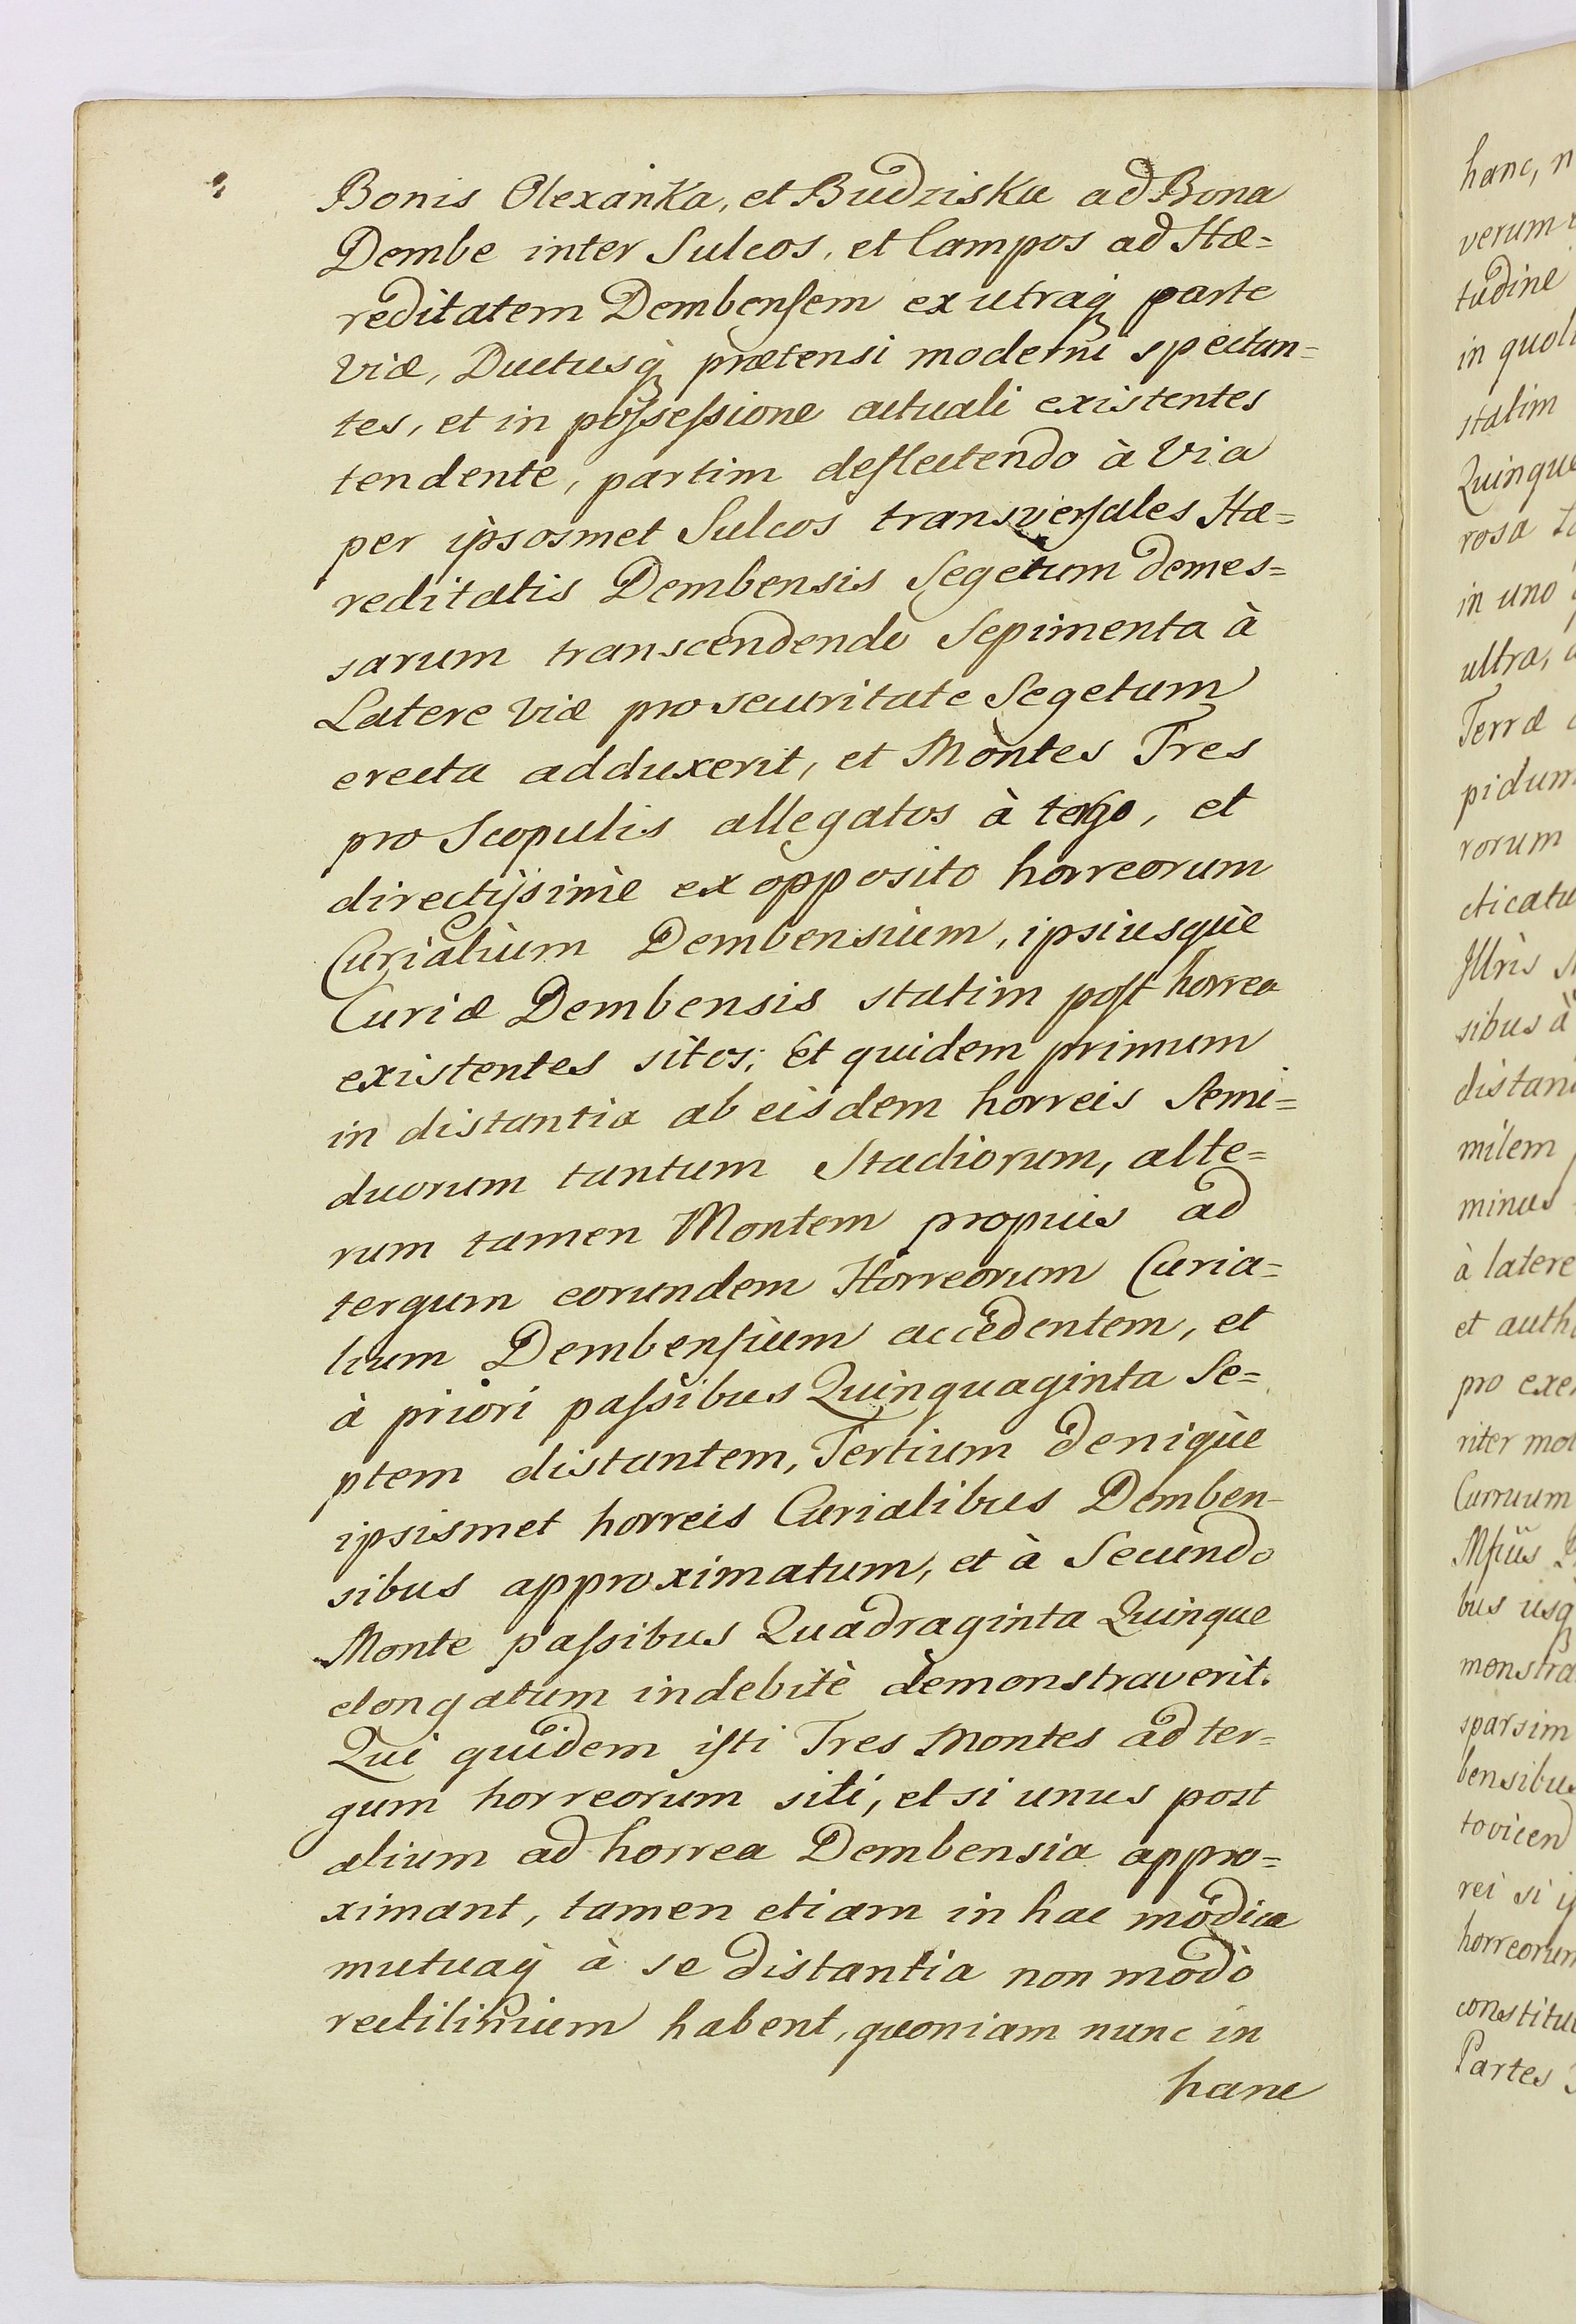 Bonis Olexanka, et Budziska ad Bona
Dembe inter Sulcos, et Campos ad Hæ=
reditatem Dembensem ex utraq; parte
Viæ, Ductusq; prætensi moderni spectan=
tes, et in possessione actuali existentes
tendente, partim deflectendo à Via
per ipsosmet Sulcos transversales Hæ=
reditatis Dembensis Segetum demes=
sarum transcendendo Sepimenta à
Latere Viæ pro securitate Segetum
erecta adduxerit, et Montes Tres
pro Scopulis allegatos à tergo, et
directissimè ex opposito horreorum
Curialium Dembensium, ipsiusquè
Curiæ Dembensis statim post horrea
existentes sitos; Et quidem primum
in distantia ab eisdem horreis Semi=
duorum tantum Stadiorum, alte=
rum tamen Montem propius ad
tergum eorundem Horreorum Curia=
lium Dembensium accedentem, et
à priori passibus Quinquaginta Se=
ptem distantem, Tertium deniquè
ipsismet horreis Curialibus Demben-
sibus approximatum, et à Secundo
Monte passibus Quadraginta Quinque
elongatum indebitè demonstraverit.
Qui quidem isti Tres Montes ad ter=
gum horreorum siti, et si unus post
alium ad horrea Dembensia appro=
ximant, tamen etiam in hac modica
mutuaq; à se distantia non modò
rectilinium habent, quoniam nunc in
hanc
hanc,
verum
tudine
in
statim
Quinque
rosa
in uno
ultra,
Terræ
pidum
rorum
cticatu
Illris
sibus à
distan
milem
minus
à latere
et auth
pro exe
riter mo
Curruum
bus usq;
monstra
sparsim
bensibus
tovicen
rei si
horreorum
constitu
Partes